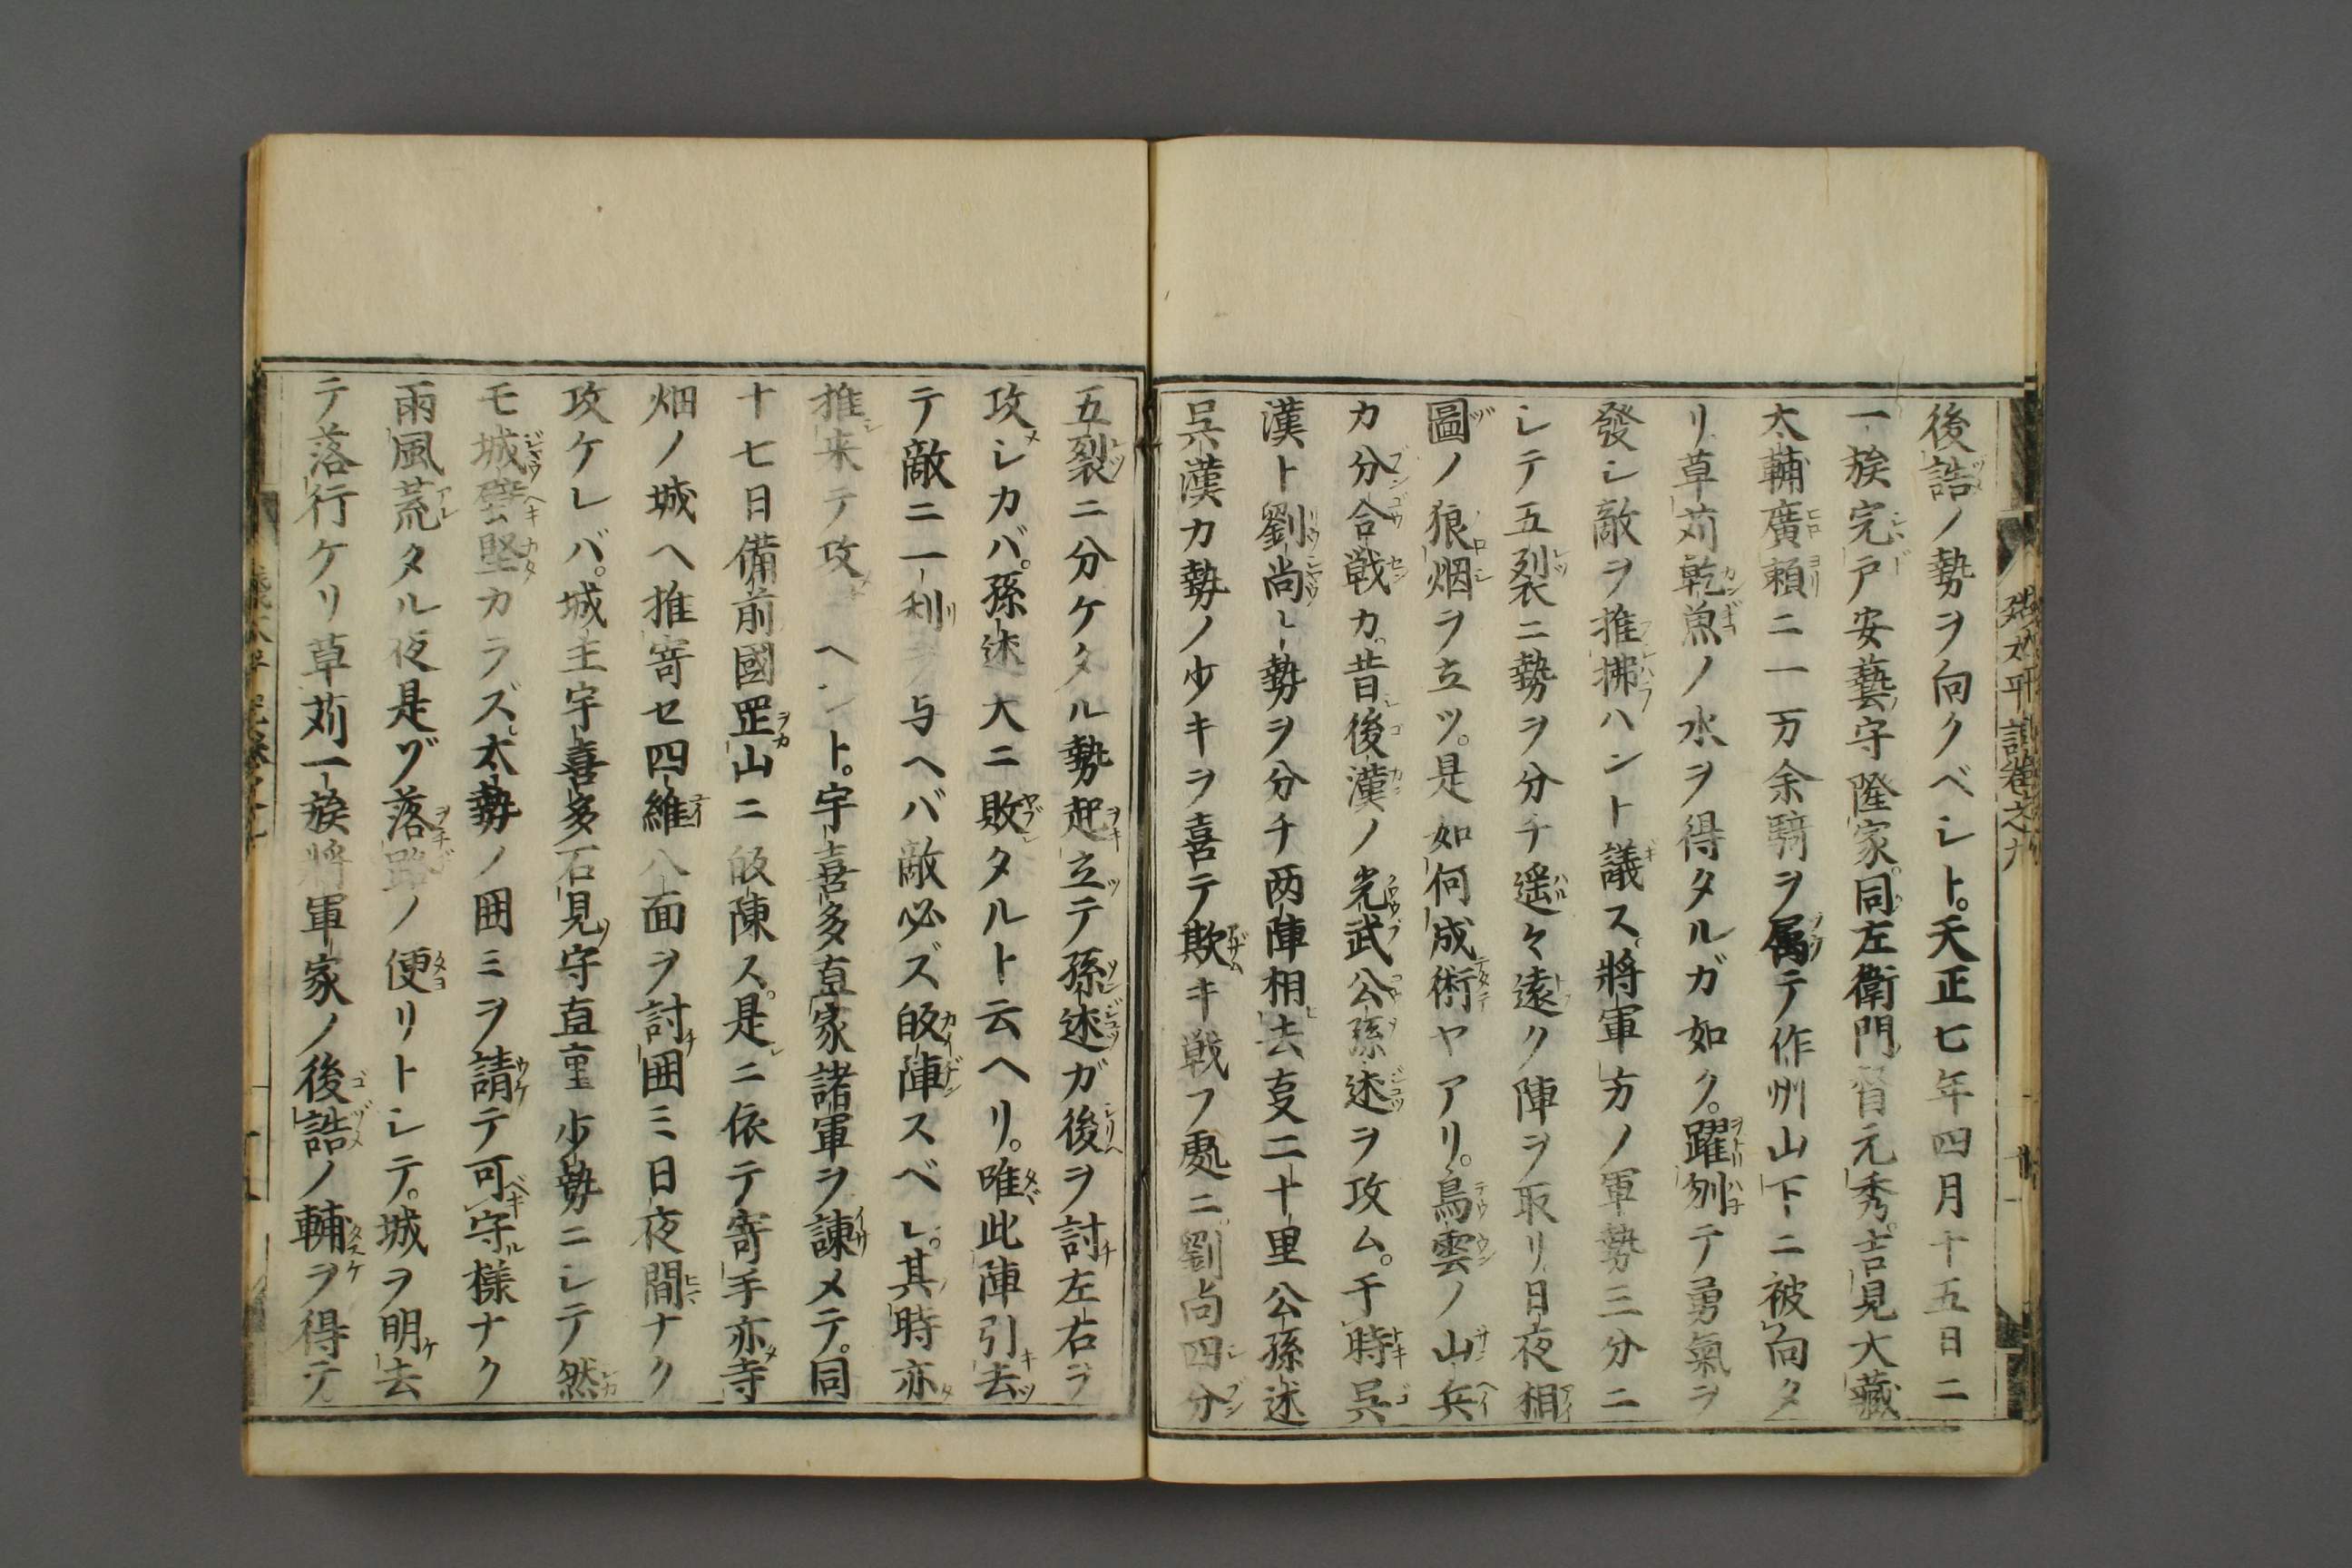 後詰ノ勢ヲ向クベシト。天正七年四月十五日ニ
一族完戸安藝守隆家。同左衛門督元秀。吉見大藏
太輔廣頼ニ一万余騎ヲ属テ作州山下ニ被向タ
リ草苅乾魚ノ水ヲ得タルガ如ク。躍刎テ勇氣ヲ
發シ敵ヲ推拂ハント議ス。將軍方ノ軍勢三分ニ
シテ五裂ニ勢ヲ分チ遥々遠ク陣ヲ取リ日夜相
圖ノ狼烟ヲ立ツ。是如何成術ヤアリ。鳥雲ノ山兵
カ分合戦カ。昔後漢ノ光武公孫述ヲ攻ム。于時呉
漢ト劉尚ト勢ヲ分チ两陣相去支二十里公孫述
呉漢カ勢ノ少キヲ喜テ欺キ戦フ處ニ劉尚四分
五裂ニ分ケタル勢起立テ孫述ガ後ヲ討左右ヲ
攻シカバ。孫述大ニ敗タルト云ヘリ。唯此陣引去
テ敵ニ一利ヲ与ヘバ敵必ズ皈陣スベシ。其時亦
推来テ攻ヘント。宇喜多直家諸軍ヲ諫メテ。同
十七日備前國罡山ニ皈陳ス。是ニ依テ寄手亦寺
畑ノ城ヘ推寄セ四維八面ヲ討囲ミ日夜間ナク
攻ケレバ。城主宇喜多石見守直重少勢ニシテ然
モ城壁堅カラズ太勢ノ囲ミヲ請テ可守様ナク
雨風荒タル夜是ヅ落路ノ便リトシテ。城ヲ明去
テ落行ケリ草苅一族將軍家ノ後詰ノ輔ヲ得テ